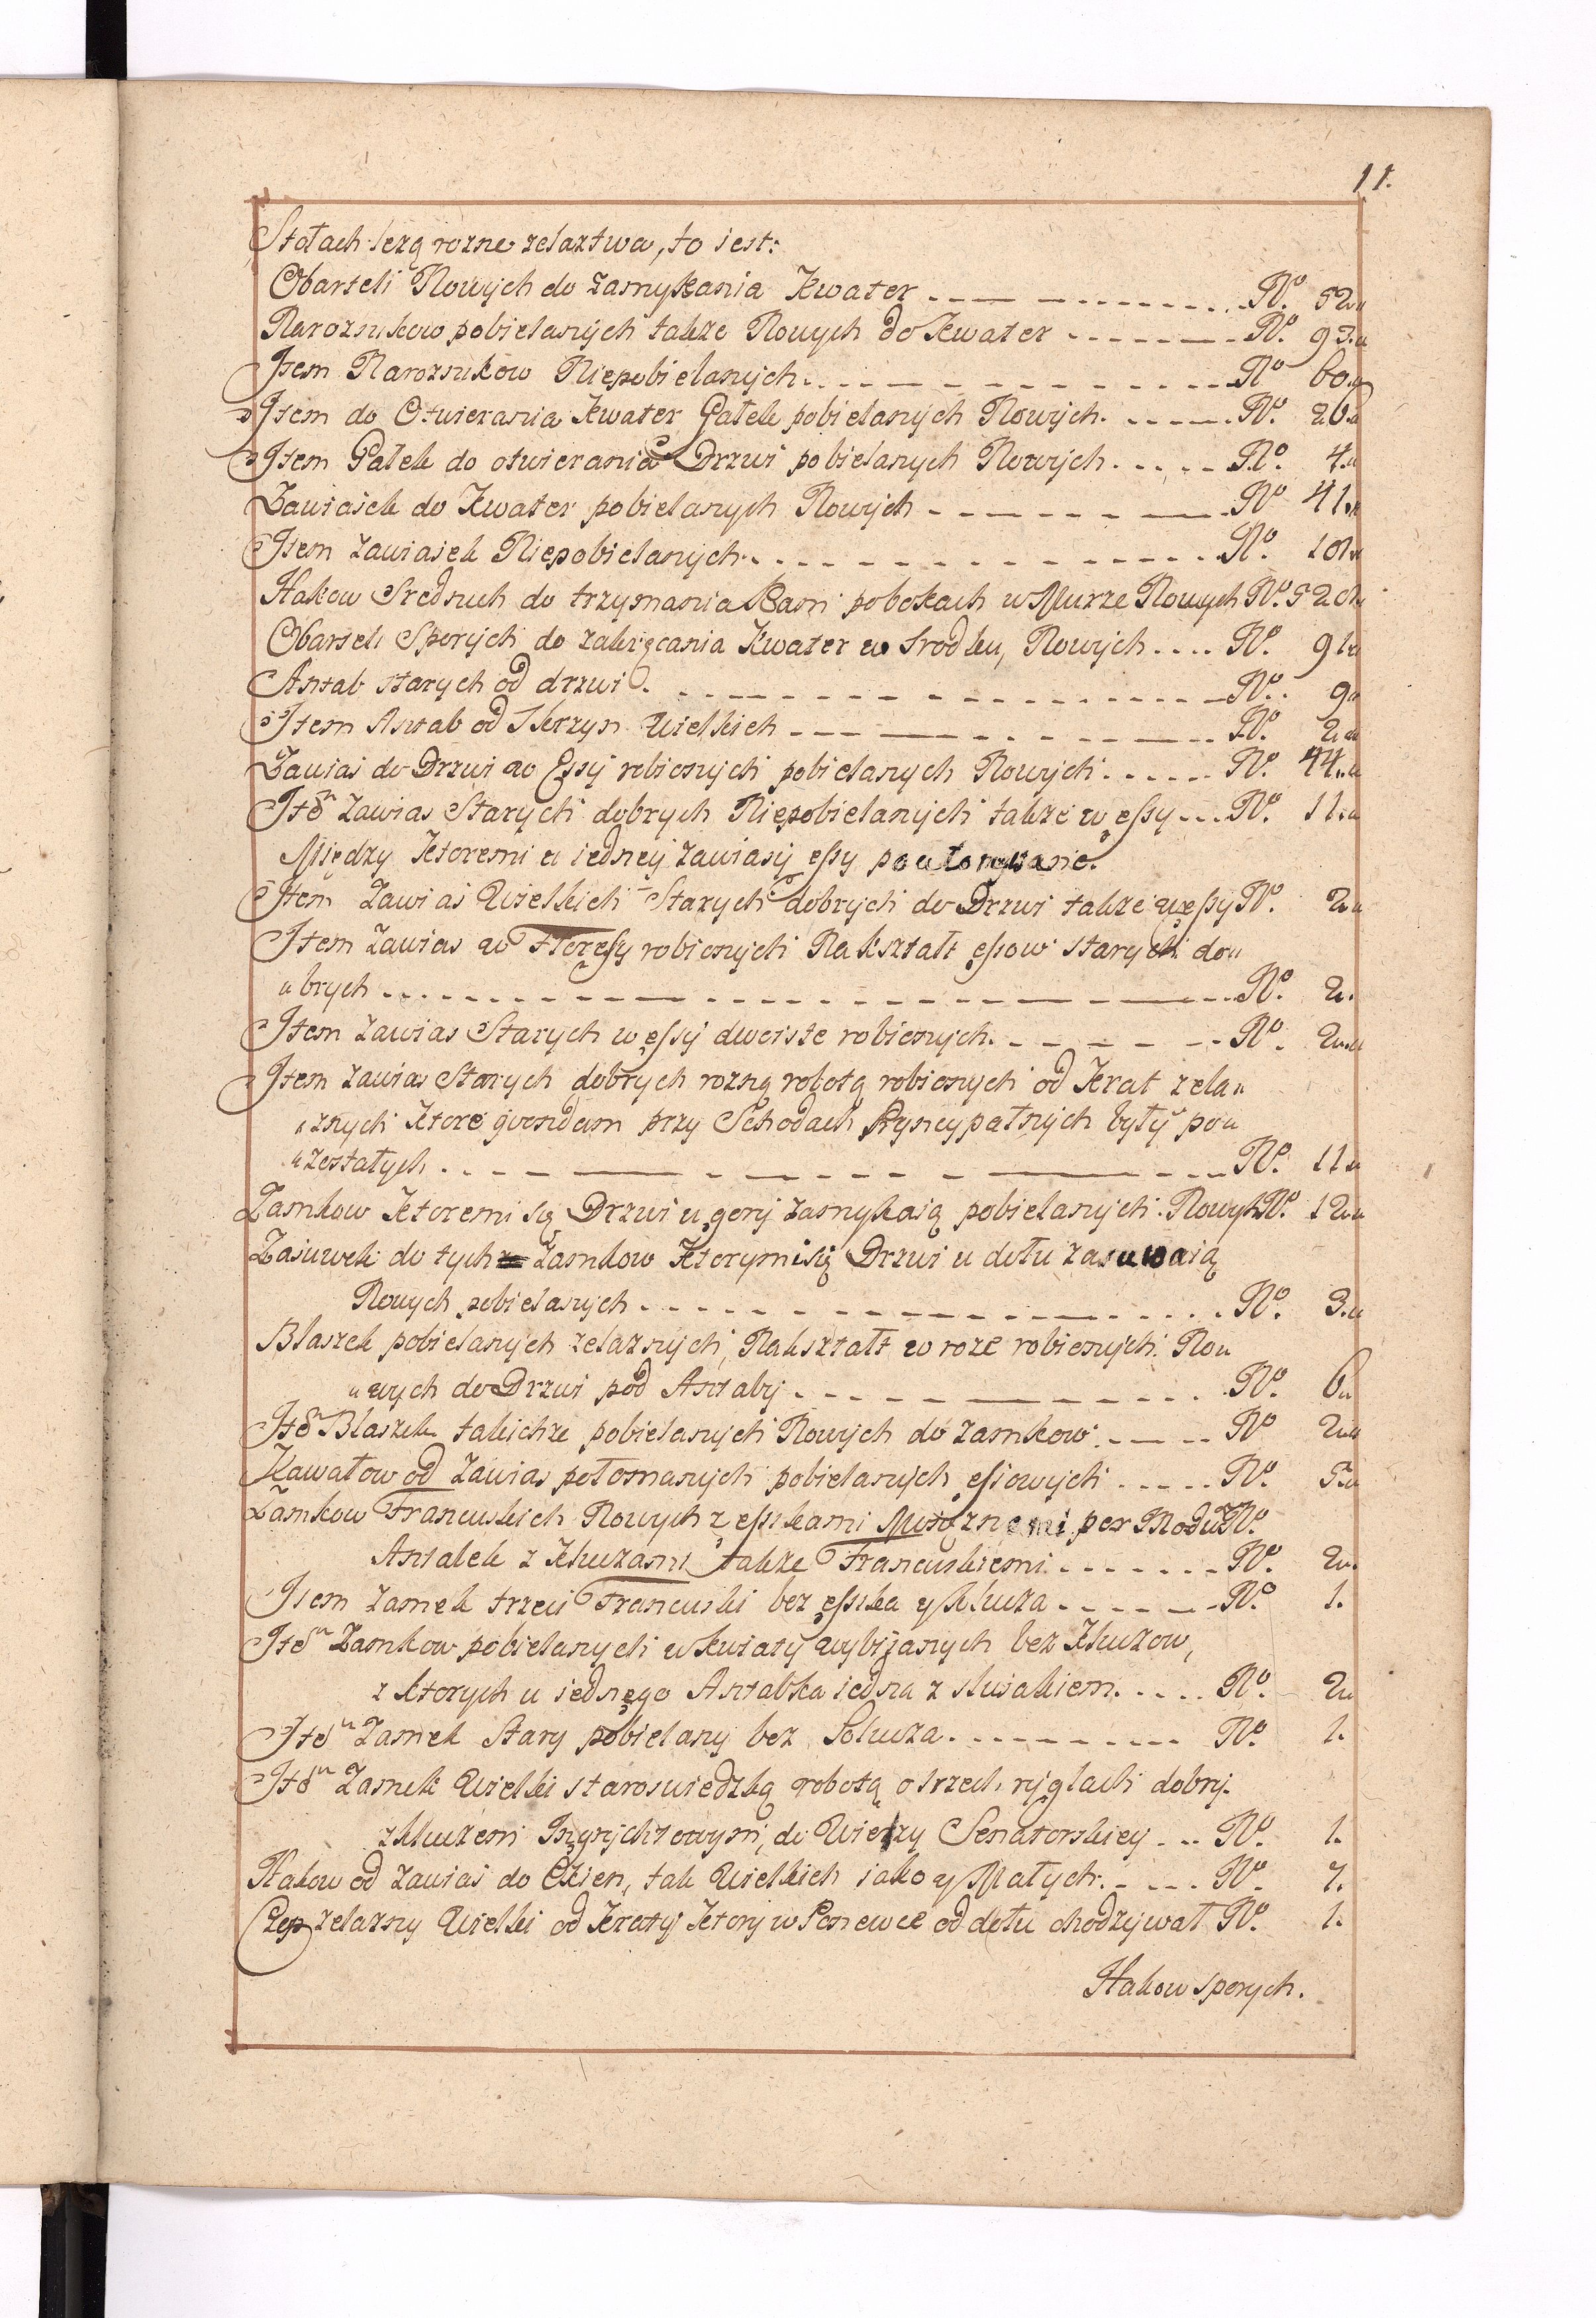 11.
Stołach leżą rozne zelaztwa, to iest:
Obarteli Nowych do zamykania Kwater ... No. 52.
Naroznikow pobielanych także Nowych do Kwater ... No. 93.
Item Naroznikow Niepobielanych ... No 60.
Item do Otwierania Kwater Gałek pobielanych Nowych. ... No. 26.
Item Gałek do otwierania Drzwi pobielanych Nowych. ... No. 4.
Zawiasek do Kwater pobielanych Nowych ... No 41.
Item Zawiasek Niepobielanych. ... No. 101.
Hakow Srednich do trzymania Ram pobokach w Murze Nowych No. 520.
Obarteli Sporych do zakręcania Kwater w srodku, Nowych ... No. 91.
Antab starych od drzwi. ... No. 9.
Item Antab od Skrzyn Wielkich ... No. 2.
Zawias do Drzwi w Essy robionych pobielanych Nowych. ... No. 44.
Ittm Zawias Starych dobrych Niepobielanych także w essy ... No. 11.
Między Ktoremi u iedney zawiasy essy
Item Zawias Wielkich Starych dobrych do Drzwi także w essy No. 2.
Item Zawias w robionych Nakształt essow starych do"
"brych ... No. 2.
Item Zawias Starych w essy dwoiste robionych. ... No. 2.
Item zawias Starych dobrych rozną robotą robionych od Krat zela"
"znych Ktore quondam przy Schodach Pryncypalnych były po"
"zostałych ... No. 11.
Zamkow Ktoremi się Drzwi u gory zamykaią pobielanych Nowych No. 12.
Zasuwek do tych Zamkow Ktorymi się Drzwi u dołu zasuwaią
Nowych pobielanych ... No. 3.
Blaszek pobielanych zelaznych, Nakształt w roze robionych. No"
"wych do Drzwi pod Antaby ... No. 6.
Ittm Blaszek takichze pobielanych Nowych do zamkow. ... No 2.
Kawałow od Zawias połomanych pobielanych essowych ... No. 5.
Zamkow Francuskich Nowych z esikami Mosiznemi per Modu No.
Antabek z Kluczami także Francuskiemi ... No. 2.
Item Zamek trzeci Francuski bez esska y Klucza ... No. 1.
Ittm Zamkow pobielanych w kwiaty wybijanych bez Kluczow,
z ktorych u iednego Antabka iedna z ... No. 2.
Ittm Zamek Stary pobielany bez Klucza ... No. 1.
Ittm Zamek Wielki staroswiedzką robotą o trzech ryglach dobry.
z kluczem do Wierzy Senatorskiey ... No. 1.
Hakow od Zawias do Okien, tak Wielkich iako y Małych. ... No. 7.
Czop zelazny Wielki od Kraty Ktory w Panewce od dołu chodzywał No. 1.
Hakow sporych.